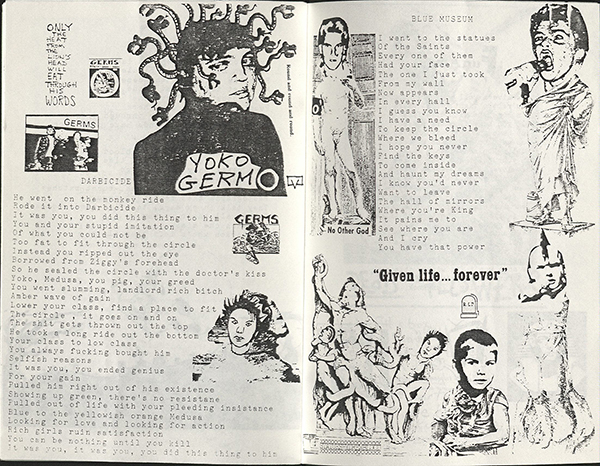 ONLY
THE
HEAT
FROM
THE
LION'S
HEAD
WILL
EAT
THROUGH
HIS
WORDS
GERMS
GERMS
round and round and round
YOKO
GERM
DARBICIDE
He went on the monkey ride
Rode it into Darbicide
It was you, you did this thing to him
You and your stupid imitation
Of what you could not be
Too fat to fit through the circle
Instead you ripped out the eye
Borrowed from Ziggy's forehead
So he sealed the circle with the doctor's kiss
Yoko, Medusa, you pig, your greed
You went slumming, landlord rich bitch
Amber wave of gain
Lower your class, find a place to fit
The circle, it goes on and on
The shit gets thrown out the top
He took a long ride out the bottom
Your class to low class
You always fucking bought him
Selfish reasons
It was you, you ended genius
For your gain
Pulled him right out of his existence
Showing up green, there's no resistane
Pulled out of life with your pleeding insistance
Blue to the yellowish orange Medusa
Looking for love and looking for action
Rich girls ruin satisfaction
You can be nothing until you kill
It was you, it was you, you did this thing to him
GERMS
BLUE MUSEUM
I want to the statues
Of the Saints
Every one of them
Had your face
The one I just took
From my wall
Now appears
In every hall
I guess you know
I have a need
To keep the circle
Where we bleed
I hope you never
Find the keys
To come inside
And haunt my dreams
I know you'd never
Want to leave
The hall of mirrors
Where you're King
It pains me to
See where you are
And I cry
You have that power
No Other God
"Given life...forever"
R.I.P